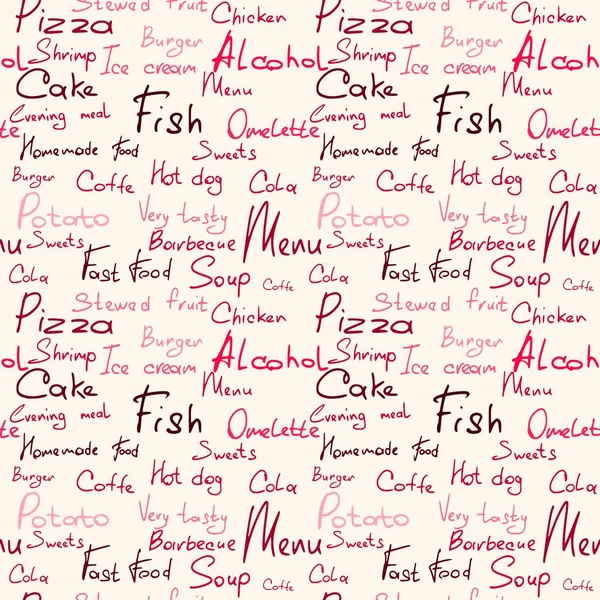 Stewed fruit Stewed fruit
Pizza Chicken Pizza Chicken
Burger Burger
ol Shrimp Ice cream Alcohol Shrimp Ice cream Alcoh
Cake Menu Cake Menu
Evening meal Fish Evening meal Fish
te Omelette Omelet
Homemade food Sweets Homemade food Sweets
Burger Coffe Hot dog Cola Burger Coffe Hot dog Cola
Potato Very tasty Potato Very tasty
nu Sweets Barbecue Menu Sweets Barbecue Men
Cola Fast Food Soup Coffe Cola Fast Food Soup Coffe
Stewed fruit Stewed fruit
Pizza Chicken Pizza Chicken
Burger Burger
ol Shrimp Ice cream Alcohol Shrimp Ice cream Alcoh
Cake Menu Cake Menu
Evening meal Fish Evening meal Fish
te Omelette Omelet
Homemade food Sweets Homemade food Sweets
Burger Coffe Hot dog Cola Burger Coffe Hot dog Cola
Potato Very tasty Potato Very tasty
nu Sweets Barbecue Menu Sweets Barbecue Men
Cola Fast Food Soup Coffe Cola Fast Food Soup Coffe